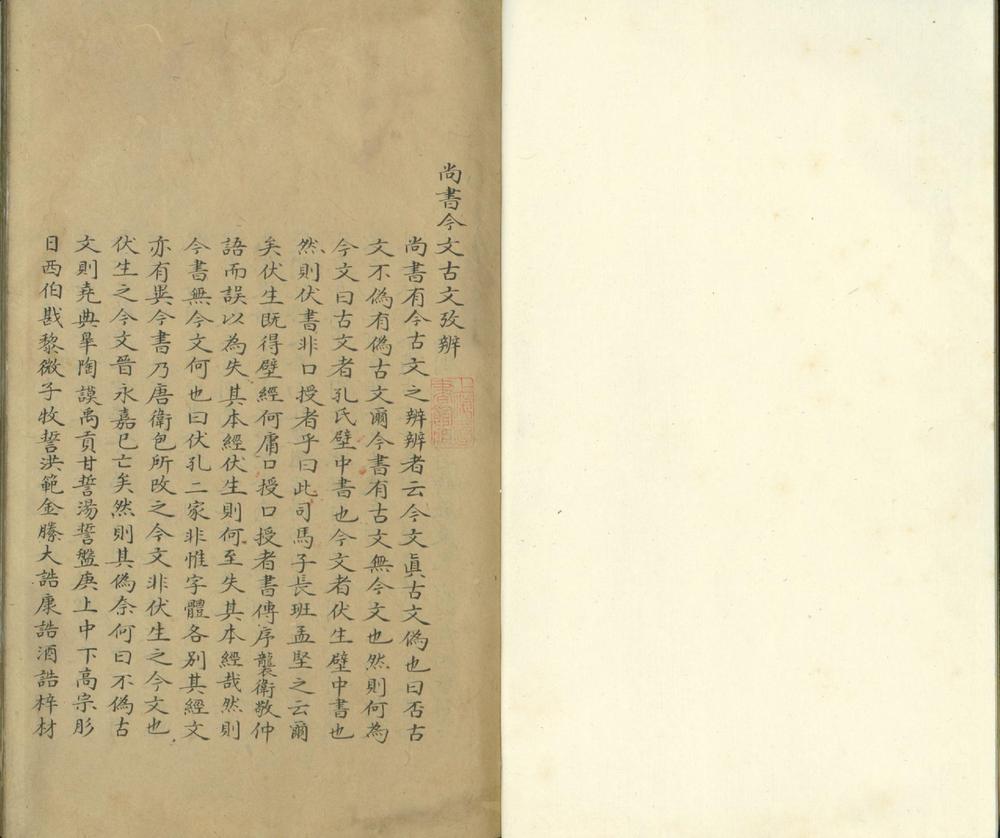 尚書今文古文攷辨
尚書有今古文之辨辨者云今文眞古文僞也曰否古
文不僞有僞古文爾今書有古文無今文也然則何為
今文曰古文者孔氏壁中書也今文者伏生壁中書也
然則伏書非口授者乎曰此司馬子長班孟堅之云爾
矣伏生既得壁經何庸口授口授者書傳序襲衛敬仲
語而誤以為失其本經伏生則何至失其本經哉然則
今書無今文何也曰伏孔二家非惟字體各別其經文
亦有異今書乃唐衛包所改之今文非伏生之今文也
伏生之今文晉永嘉已亡矣然則其僞奈何曰不僞古
文則堯典臯陶謨禹貢甘誓湯誓盤庚上中下高宗肜
日西伯戡黎微子牧誓洪範金縢大誥康誥酒誥梓材